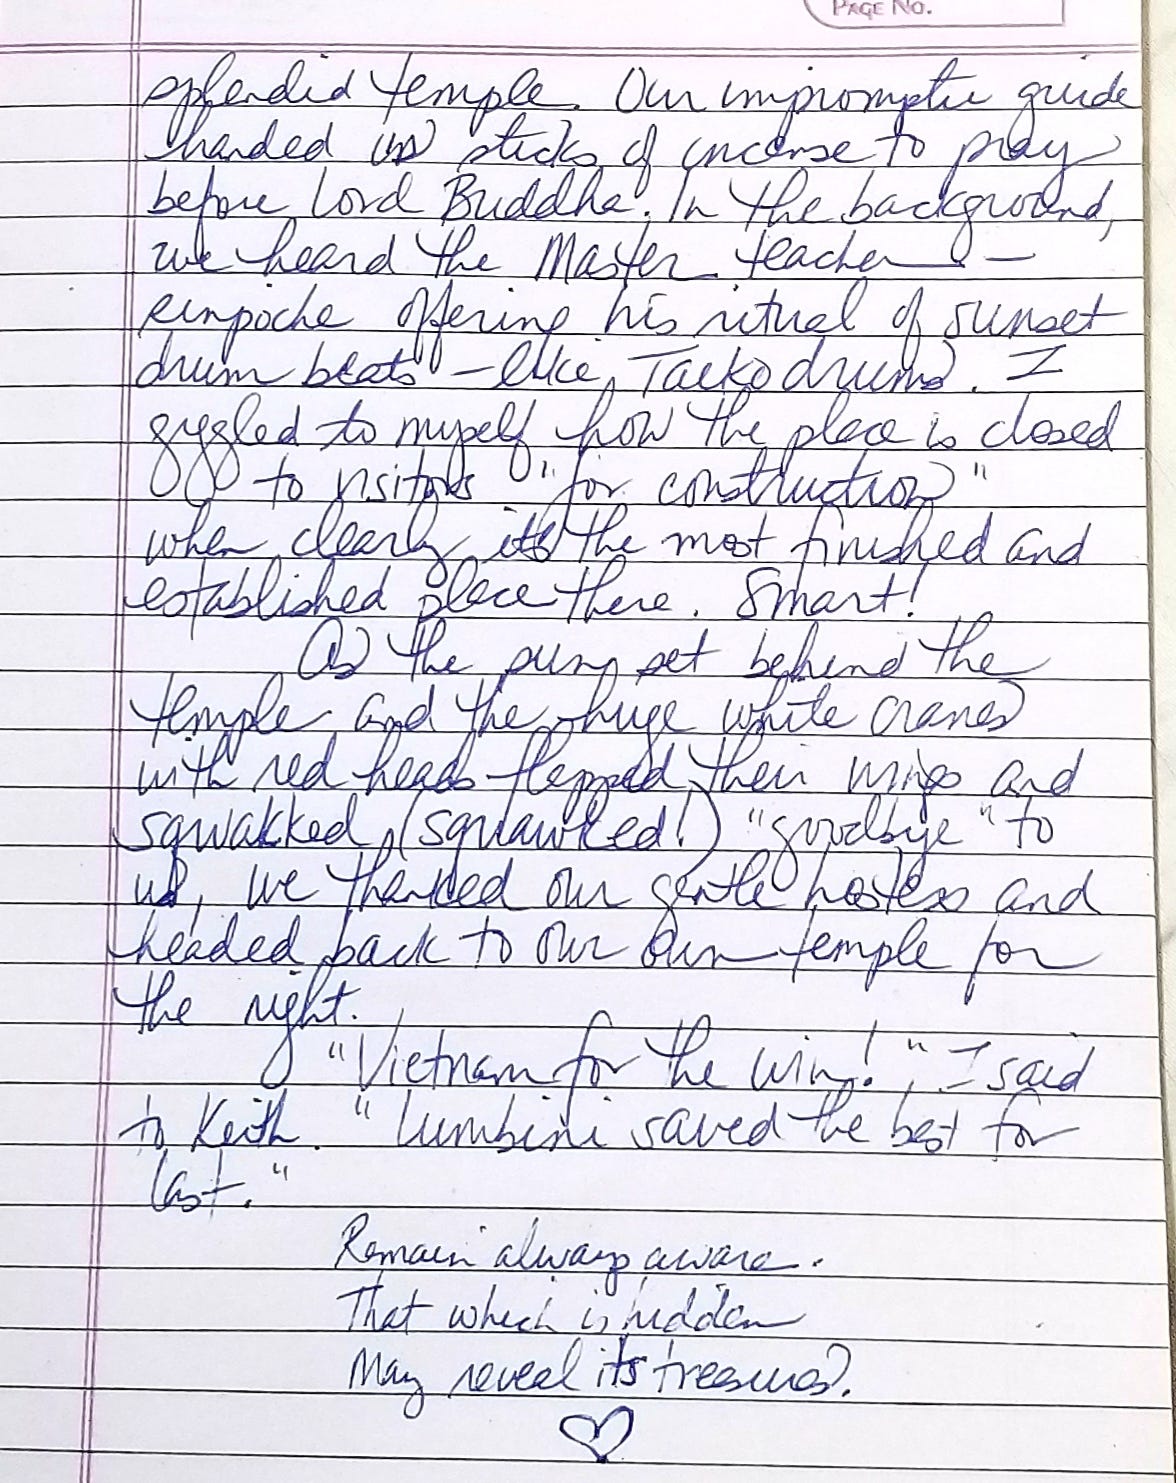 PAGE NO.
splendid temple. Our impromptu guide
handed us sticks of incense to pray
before Lord Buddha. In the background,
we heard the Master teacher –
rinpoche offering his ritual of sunset
drum beats – like Taiko drums. I
giggled to myself how the place is closed
to visitors "for construction"
when clearly its the most finished and
established place there. Smart!
As the sun set behind the
temple and the huge white cranes
with red heads flapped their wings and
sqwakked (squawked!) "goodbye" to
us, we thanked our gentle hostess and
headed back to our own temple for
the night.
"Vietnam for the win!", I said
to Keith. "Lumbini saved the best for
last."
Remain always aware.
That which is hidden
May reveal its treasures.